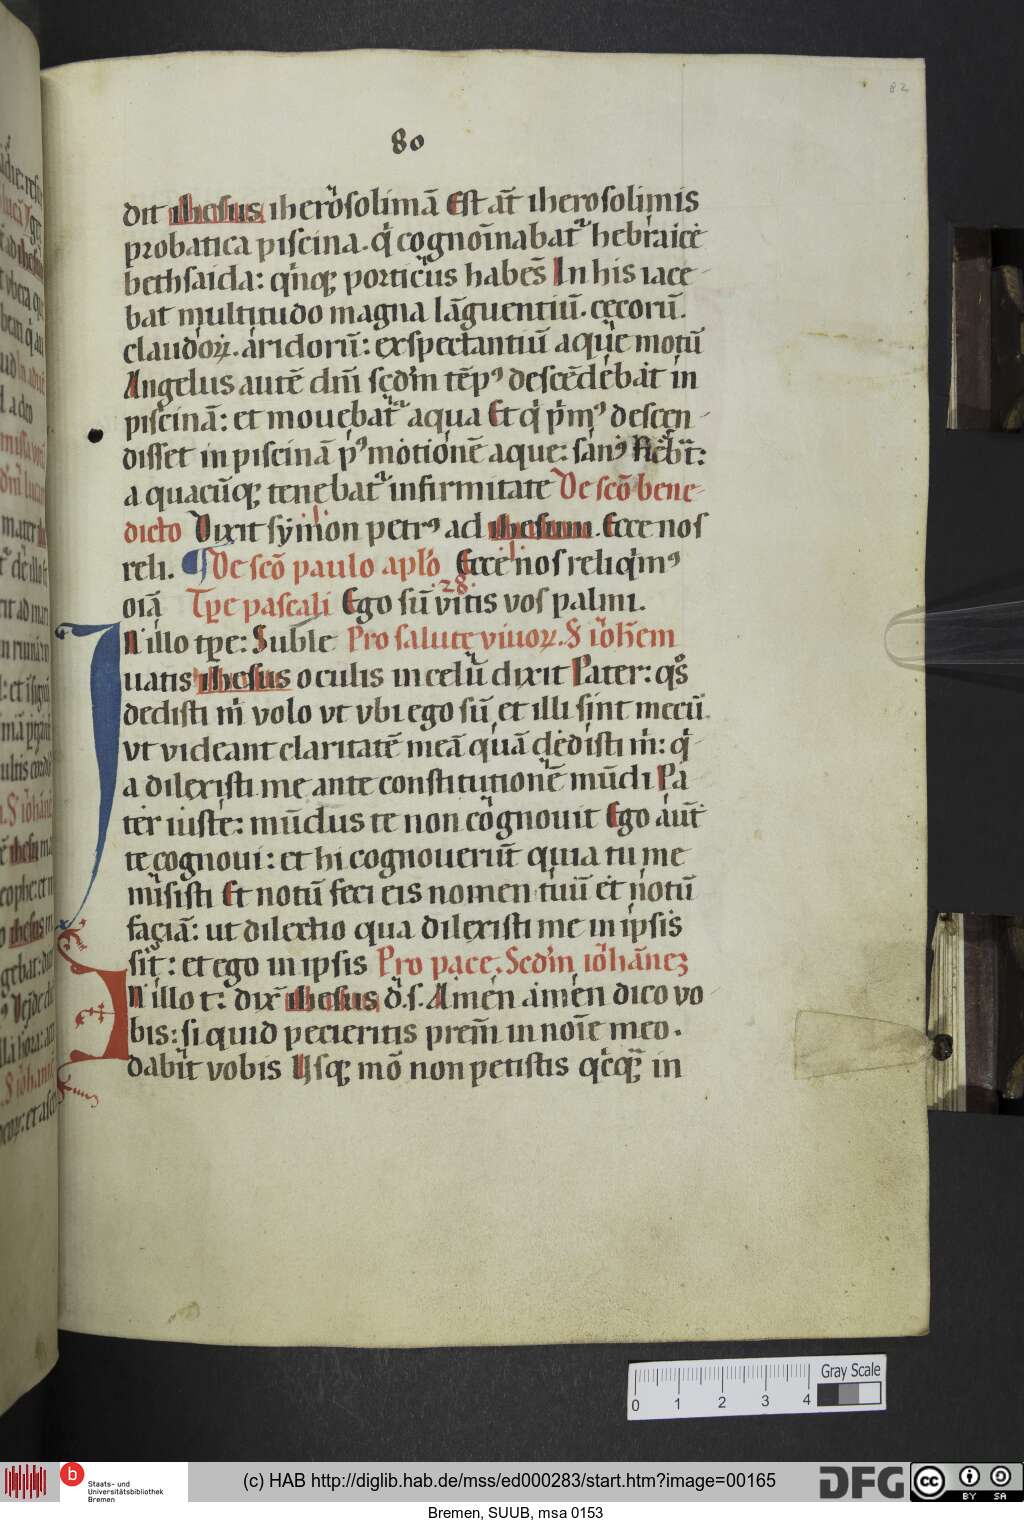 82
80
dit ihesus iherosolimā Est āt iherosolimis
probatica piscina. q̇ cognoīnabat᷑ hebraice
bethsaida: qīnq; porticus habēs In his iace
bat multitudo magna lāguentiū. cecorū.
claudoꝝ. aridorū: expectantiū aque motū
Angelus autē dn̄i scd'm tēpꝰ descēdebat in
piscinā: et mouebat᷑ aqua Et q̇ p̄mꝰ descen
disset in piscinā pꝰ motionē aque: sanꝰ fiebat:
a quacūq; tenebat᷑ infirmitate De scō bene
dicto Dixit symon petrꝰ ad ihesum. Ecce nos
reli. ¶ De scō paulo aplo Ecce nos reliq̇mꝰ
oīa Tp̄e pascali Ego sū vitis vos palmi.
28.
In illo tp̄e: Suble Pro salute viuoꝝ. S ioh̄em
uatis ihesus oculis in celū dixit Pater: qs
dedisti m̄ volo vt vbi ego sū et illi sint mecū
vt videant claritatē meā quā dedisti m̄: q̇
a dilexisti me ante constitutionē mūdi Pa
ter iuste: mūdus te non cognouit Ego aūt
te cognoui: et hi cognouerūt quia tu me
misisti Et notū feci eis nomen tuū et notū
faciā: ut dilectio qua dilexisti me in ipsis
sit: et ego in ipsis Pro pace. Scd'm iohānez
In illo t: dix ihesus d. s. Amen amen dico vo
bis: si quid pecieritis prem̄ in noīe meo.
dabit vobis Usq; mō non petistis q̇cq; in
0 1 2 3 4
Gray Scale
b Staats- und
Universitätsbibliothek
Bremen
(c) HAB http://diglib.hab.de/mss/ed000283/start.htm?image=00165
DFG
cc BY SA
Bremen, SUUB, msa 0153